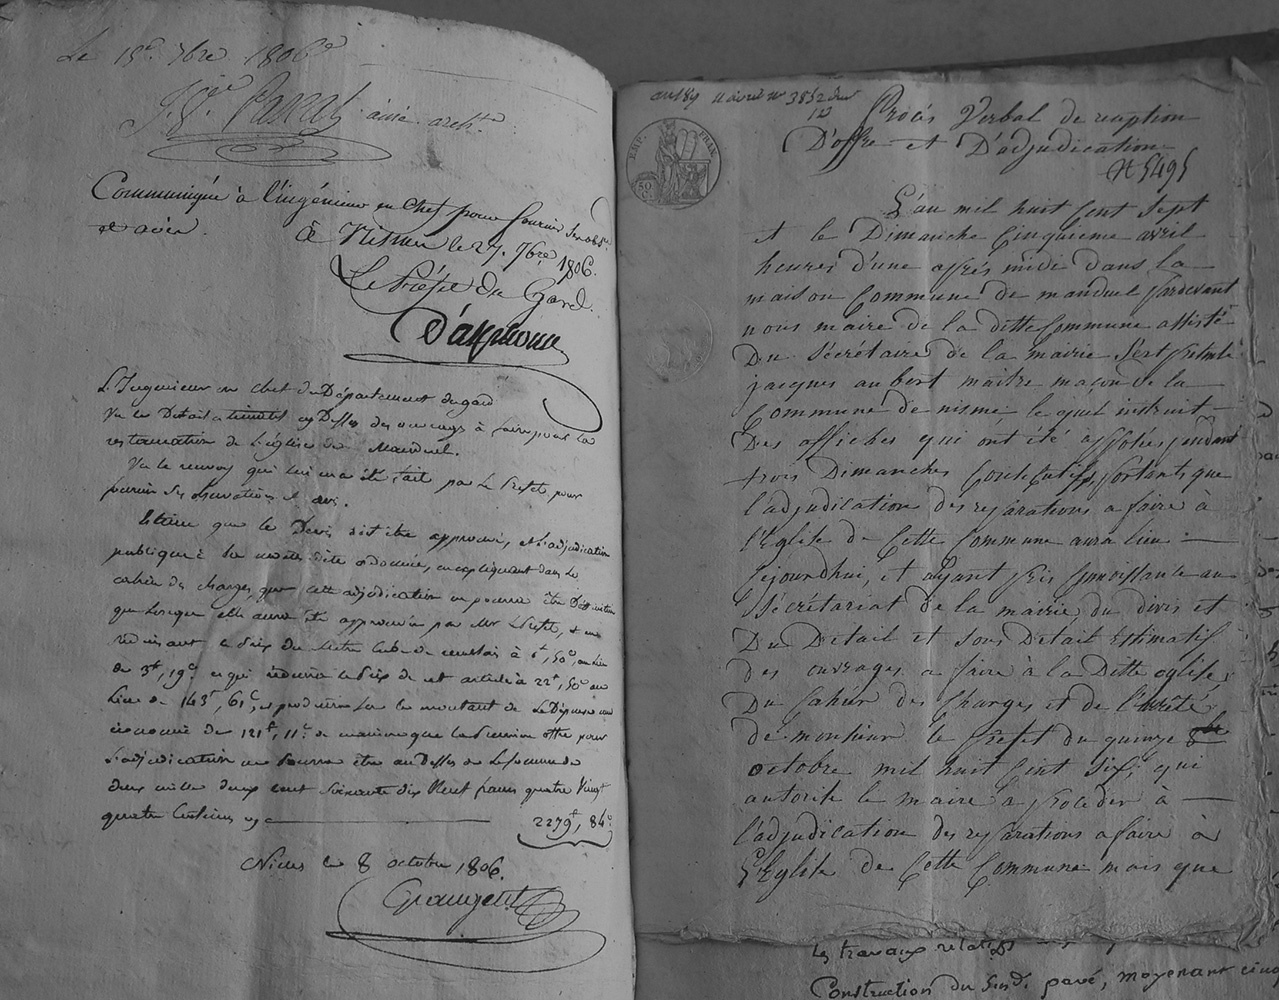 Le 18e 7bre 1806
Pascal ainé archte
Communiquée à l'ingénieur en chef pour fournir ses obs.
et avis.
à Nismes le 27. 7bre 1806.
Le Préfet du Gard.
D'alphonse
L'Ingenieur en chef du Département du gard
Vu le Detail estimatif cy Dessus des ouvrages à faire pour la
restauration de l'église de Manduel.
Vu le renvoy qui lui en a été fait par Mr le Prefet, pour
fournir ses observations et avis.
Estime que le Devis doit être approuvé, et l'adjudication
publique à la mettre être ordonnée, en expliquant dans le
cahier des charges, que cette adjudication ne pourra être Définitive
que lorsque elle aura été approuvée par Mr le Prefet, & en
reduisant le prix du Mètre Cube de à 1f, 50c au lieu
de 3f, 19c ce qui réduira le prix de cet article à 22f, 50c au
lieu de 143f, 61c, et produira sur le montant de la Dépense une
économie de 121f, 11c de manière que la Première offre pour
l'adjudication ne pourra être au Dessus de la somme de
deux mille deux cent soixante dix Neuf francs quatre Vingt
quatre Centimes cy 2279f, 84c
Nismes le 8 octobre 1806.
Grangent
11 avril 3852
EMP. FRAN.
50 C.
Procès Verbal de reception
D'offre et D'adjudication
N 5495
L'an mil huit Cent Sept
et le Dimanche Cinquieme avril
heures d'une après midi dans la
maison Commune de manduel pardevant
nous maire de la ditte Commune assisté
Du Sécrétaire de la mairie S'est présenté
jacques aubert maitre maçon de la
Commune de nisme le quel instruit
Des affiches qui ont été apposées pendant
trois Dimanches Consecutifs portants que
l'adjudication des reparations a faire à
l'Eglise de Cette Commune aura lieu
Cejourdhui, et ayant pris Connoissance au
Sécrétariat de la mairie du divis et
Du Detail et sous Detail Estimatif
des ouvrages a faire à la Ditte eglise,
Du Cahier des Charges et de l'arreté
de monsieur le Préfet du quinze
octobre mil huit Cent Six, qui
autorise le maire a proceder à
l'adjudication des reparations a faire à
l'Eglise de Cette Commune mais que
les travaux relatifs
Construction du pavé, moyenant cinq